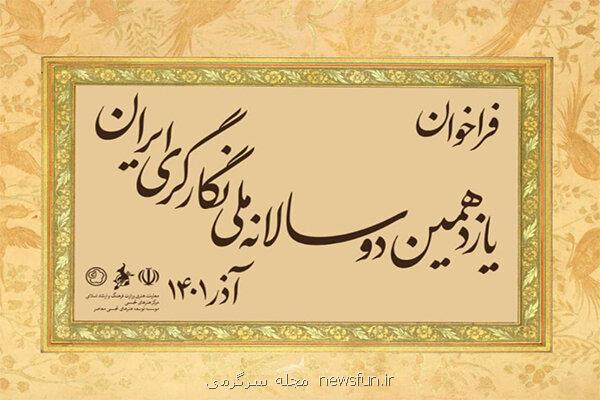 فراخوان
یازدهمین دوسالانه ملی نگارگری ایران
آذر ۱۴۰۱
معاونت هنری وزارت فرهنگ و ارشاد اسلامی
مرکز هنرهای تجسمی
موسسه توسعه هنرهای تجسمی معاصر
newsfun.ir مجله سرگرمی